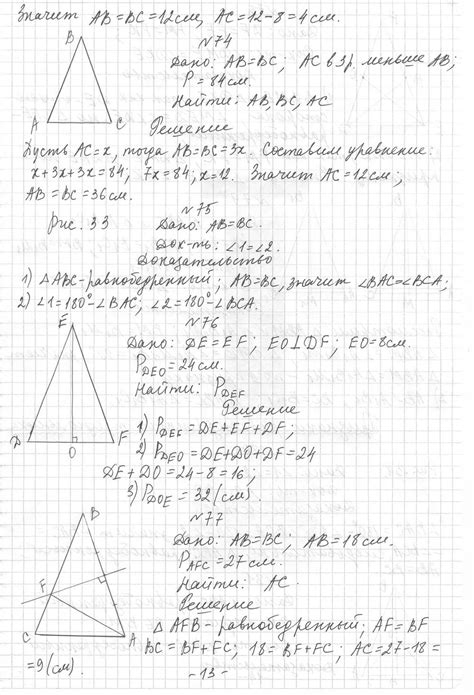 Значит AB=BC=12см, AC=12-8=4см.
B
A
C
№74
Дано: AB=BC; AC в 3р. меньше AB;
P=84см.
Найти: AB, BC, AC
Решение
Пусть AC=x, тогда AB=BC=3x. Составим уравнение:
x+3x+3x=84; 7x=84; x=12. Значит AC=12см;
AB=BC=36см.
№75
Рис. 33
Дано: AB=BC.
Док-ть: ∠1=∠2.
Доказательство
1) △ABC-равнобедренный; AB=BC, значит ∠BAC=∠BCA;
2) ∠1=180°-∠BAC; ∠2=180°-∠BCA.
E
D
O
F
№76
Дано: DE=EF; EO⊥DF; EO=8см.
P_DEO=24см.
Найти: P_DEF
Решение
1) P_DEF=DE+EF+DF;
2) P_DEO=DE+DO+DF=24
DE+DO=24-8=16;
3) P_DOE=32(см).
B
F
C
A
№77
Дано: AB=BC; AB=18см.
P_AFC=27см.
Найти: AC.
Решение
△AFB-равнобедренный; AF=BF
BC=BF+FC; 18=BF+FC; AC=27-18=
=9(см).
-13-